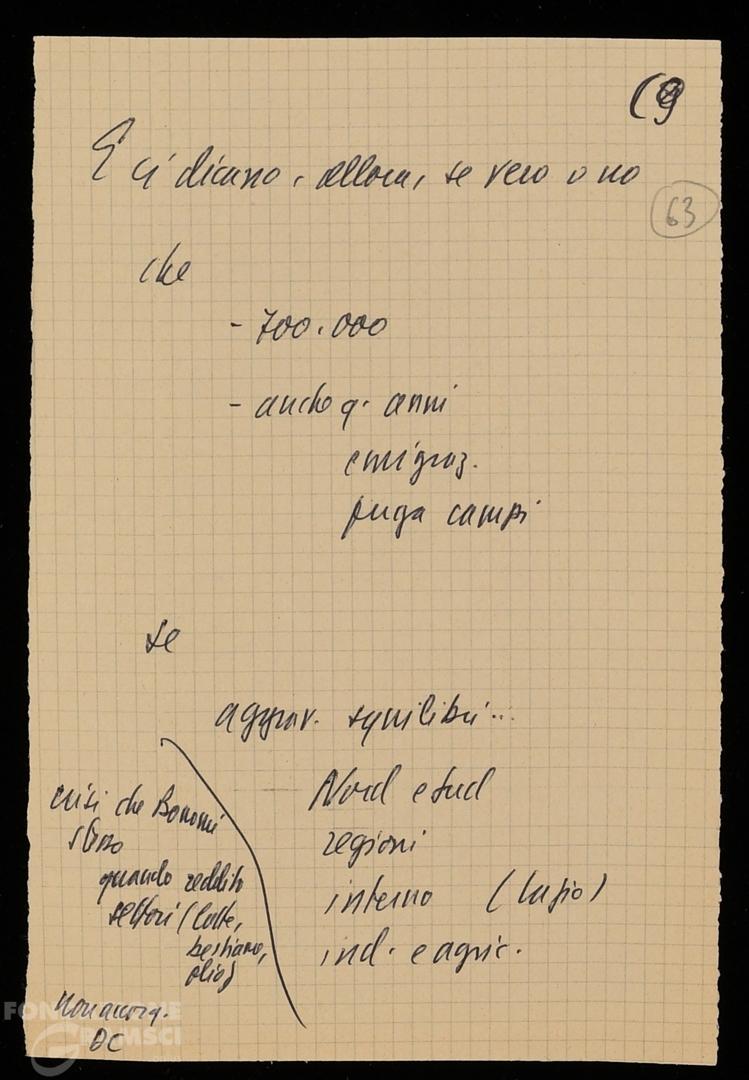 (9
E ci dicano, allora, se vero o no
63
che
- 700.000
- anche q. anni
emigraz.
fuga campi
se
aggrav. squilibri...
Nord e Sud
regioni
interno (Lazio)
ind. e agric.
crisi che Bonomi
quando reddito
settori (latte,
bestiame,
olio)
DC
FONDAZIONE
GRAMSCI